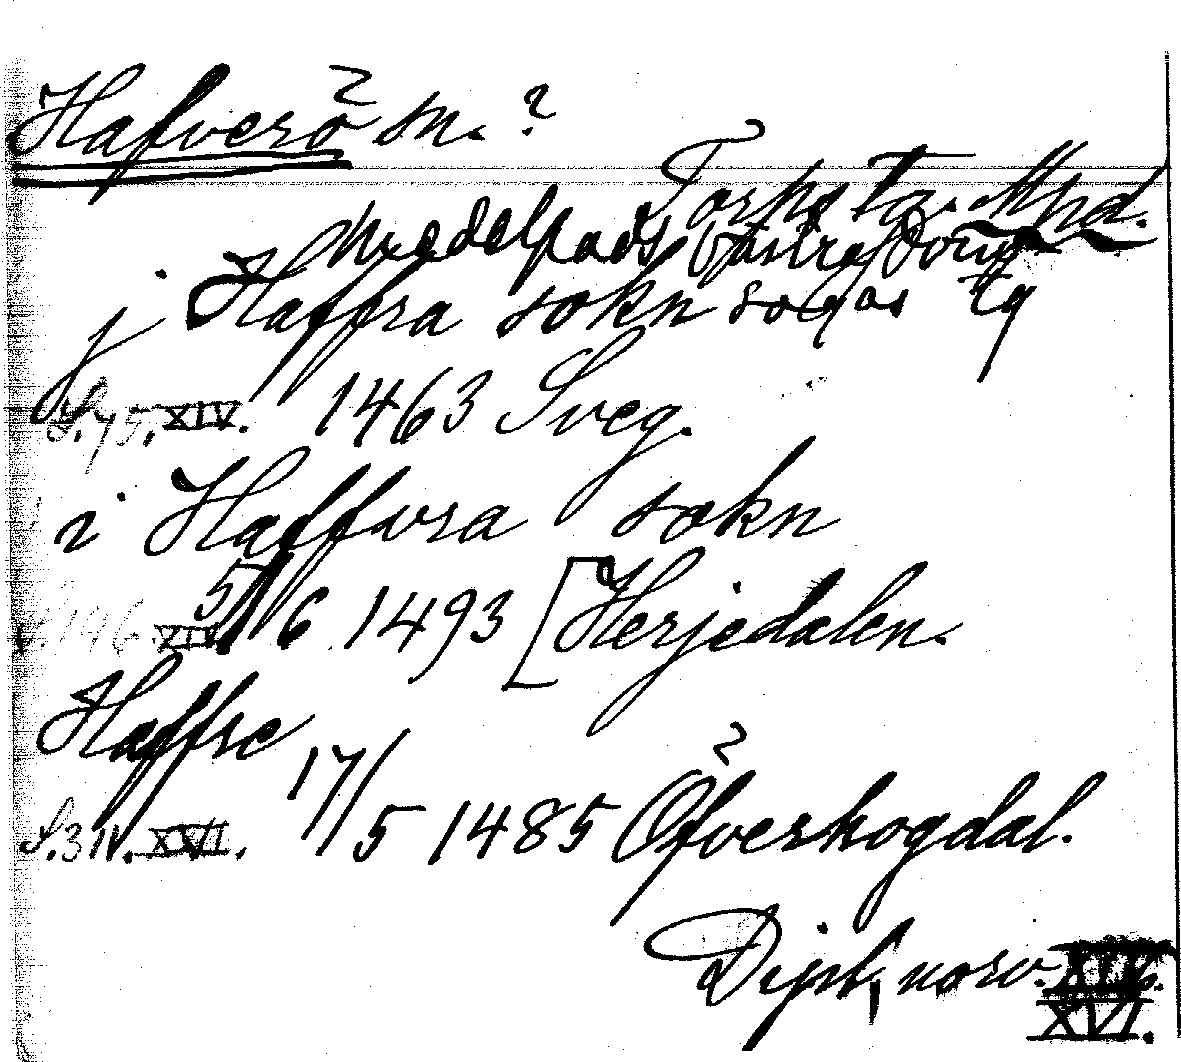 Hafverö sn. ?
Torps tg. Mpd.
Medelpads västra domsagas tg
j Haffra sokn
S. 95. XIV. 1463 Sveg.
i Haffwra sokn
S. 146 XIV 5/6 1493 [Herjedalen.
Haffre
S. 311. XVI. 17/5 1485 Öfverhogdal.
Dipl. norv. XIV.
XVI.